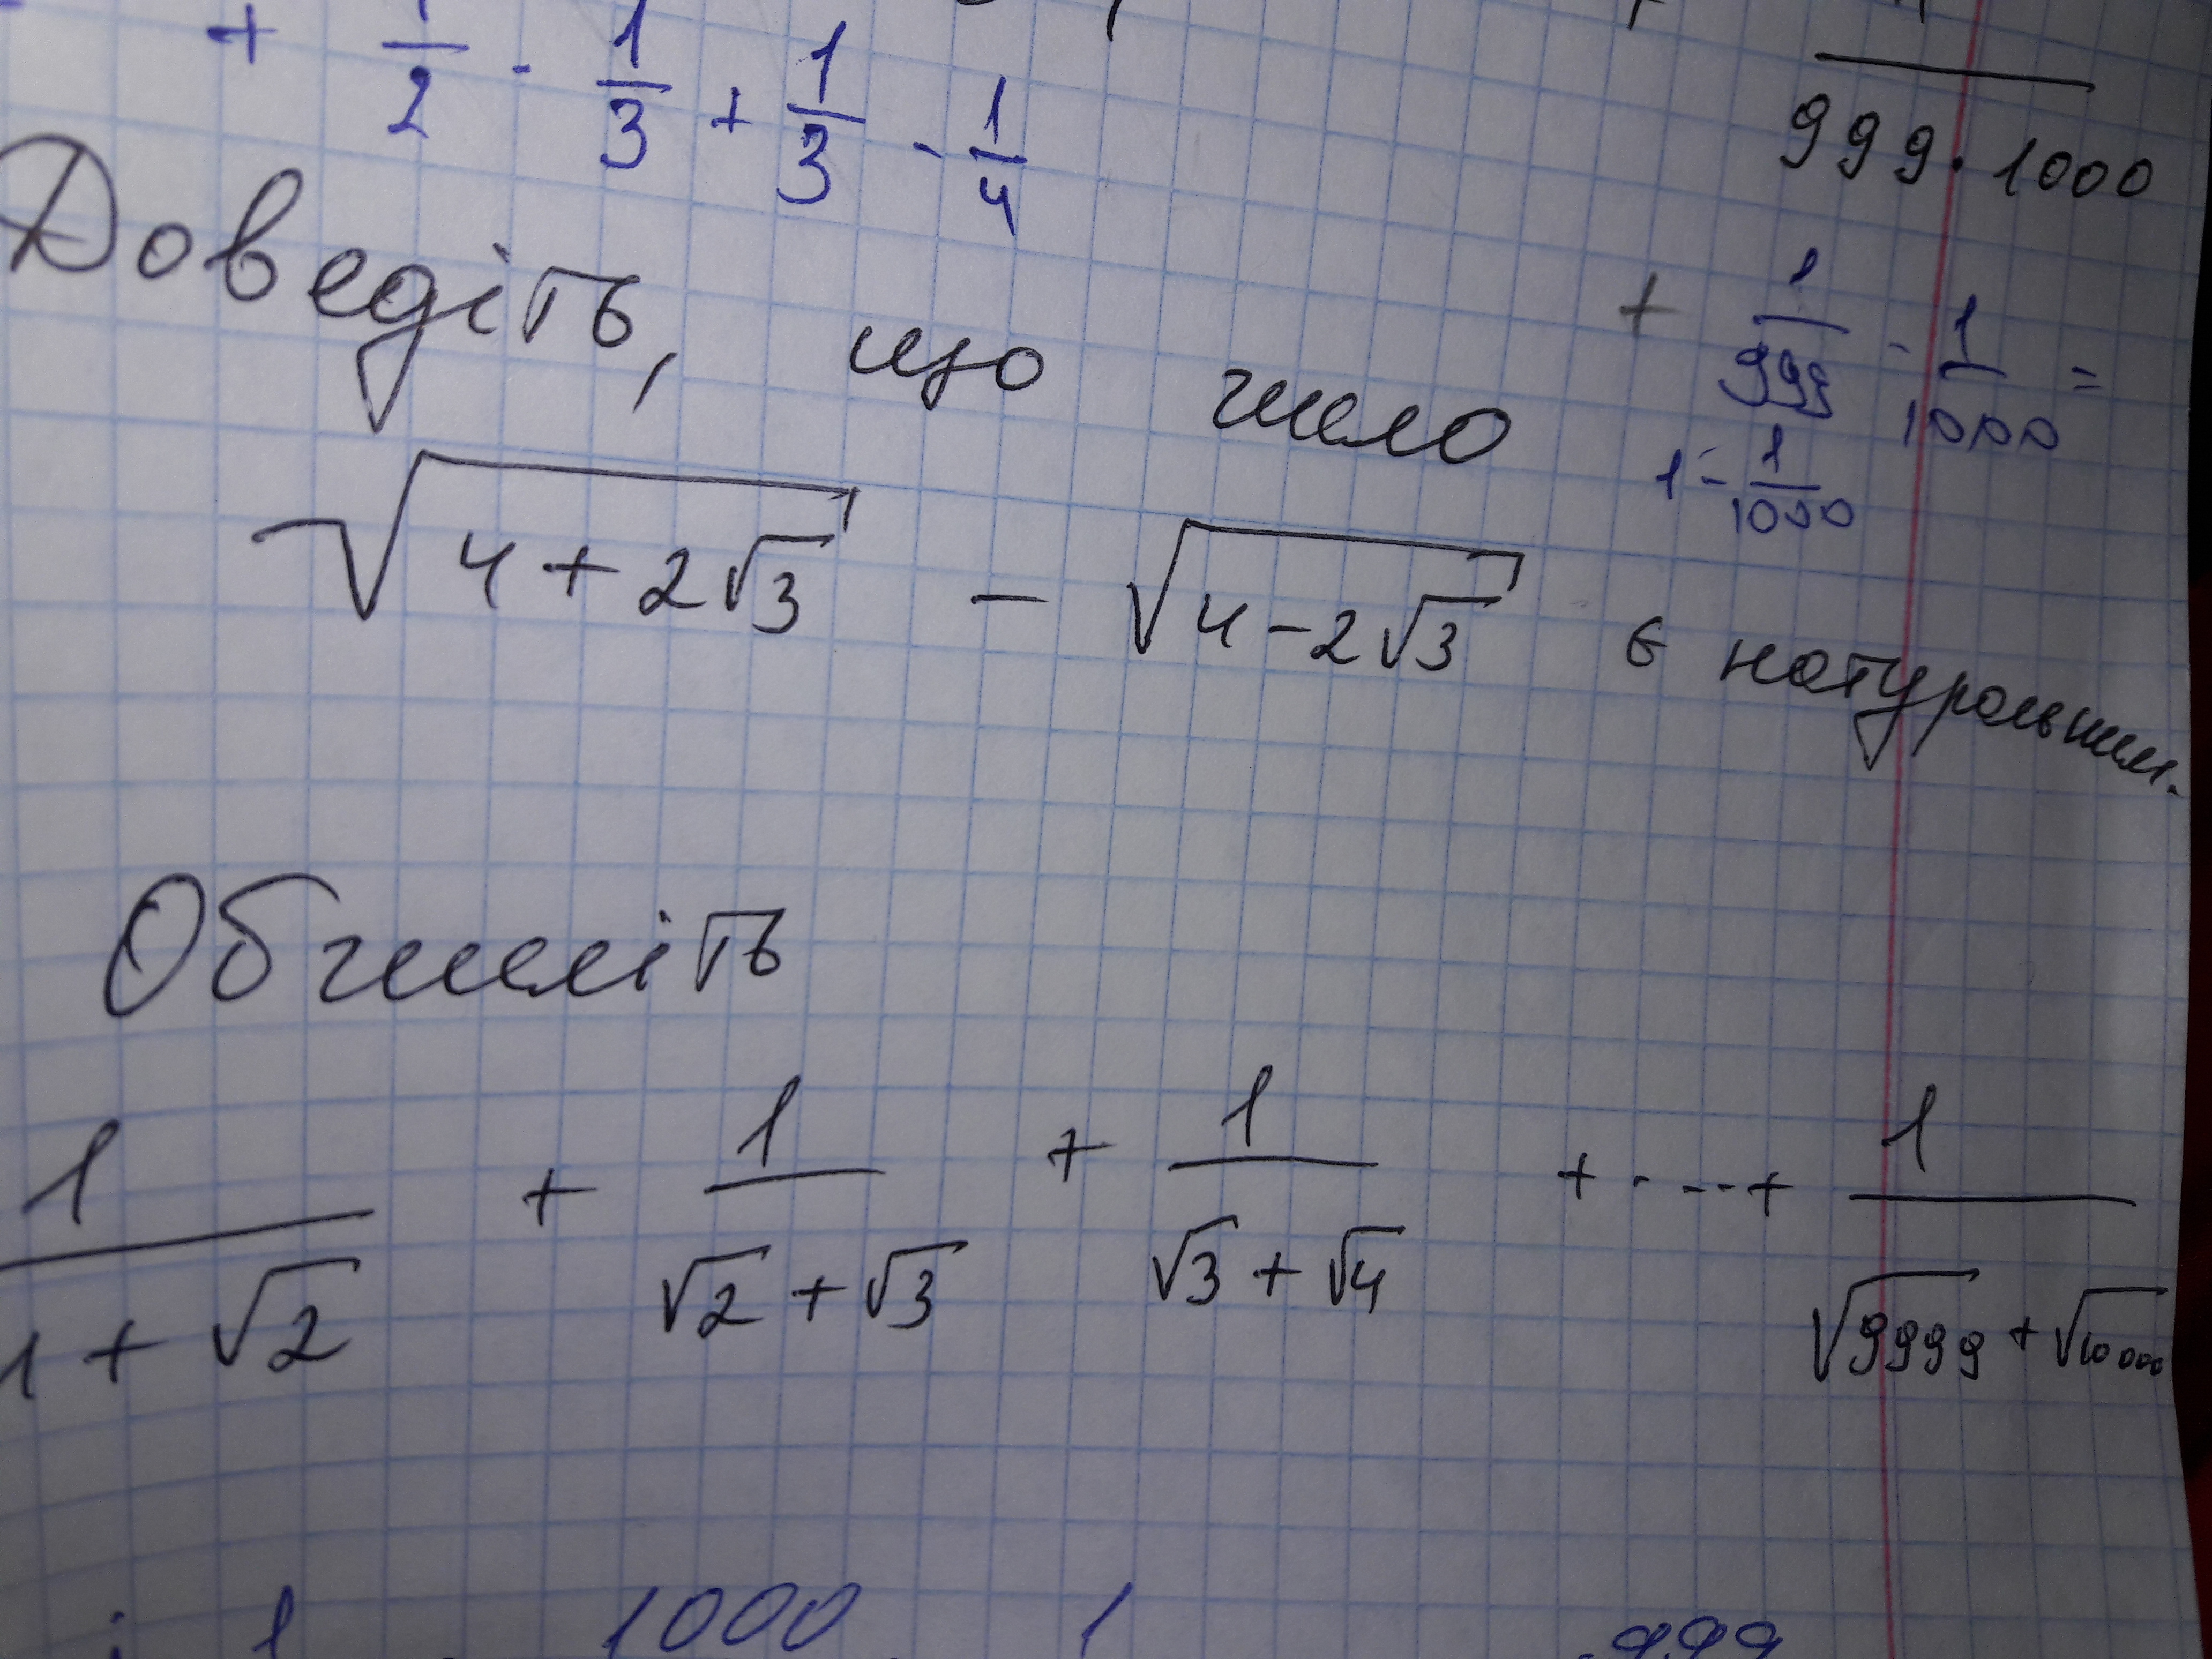 + 1/2 - 1/3 + 1/3 - 1/4
999·1000
Доведіть, що число
+ 1/999 - 1/1000 =
1 - 1/1000
√(4+2√3) - √(4-2√3) є натуральним.
Обчисліть
1/(1+√2) + 1/(√2+√3) + 1/(√3+√4) + ... + 1/(√9999+√10000)
1 1000 1 999